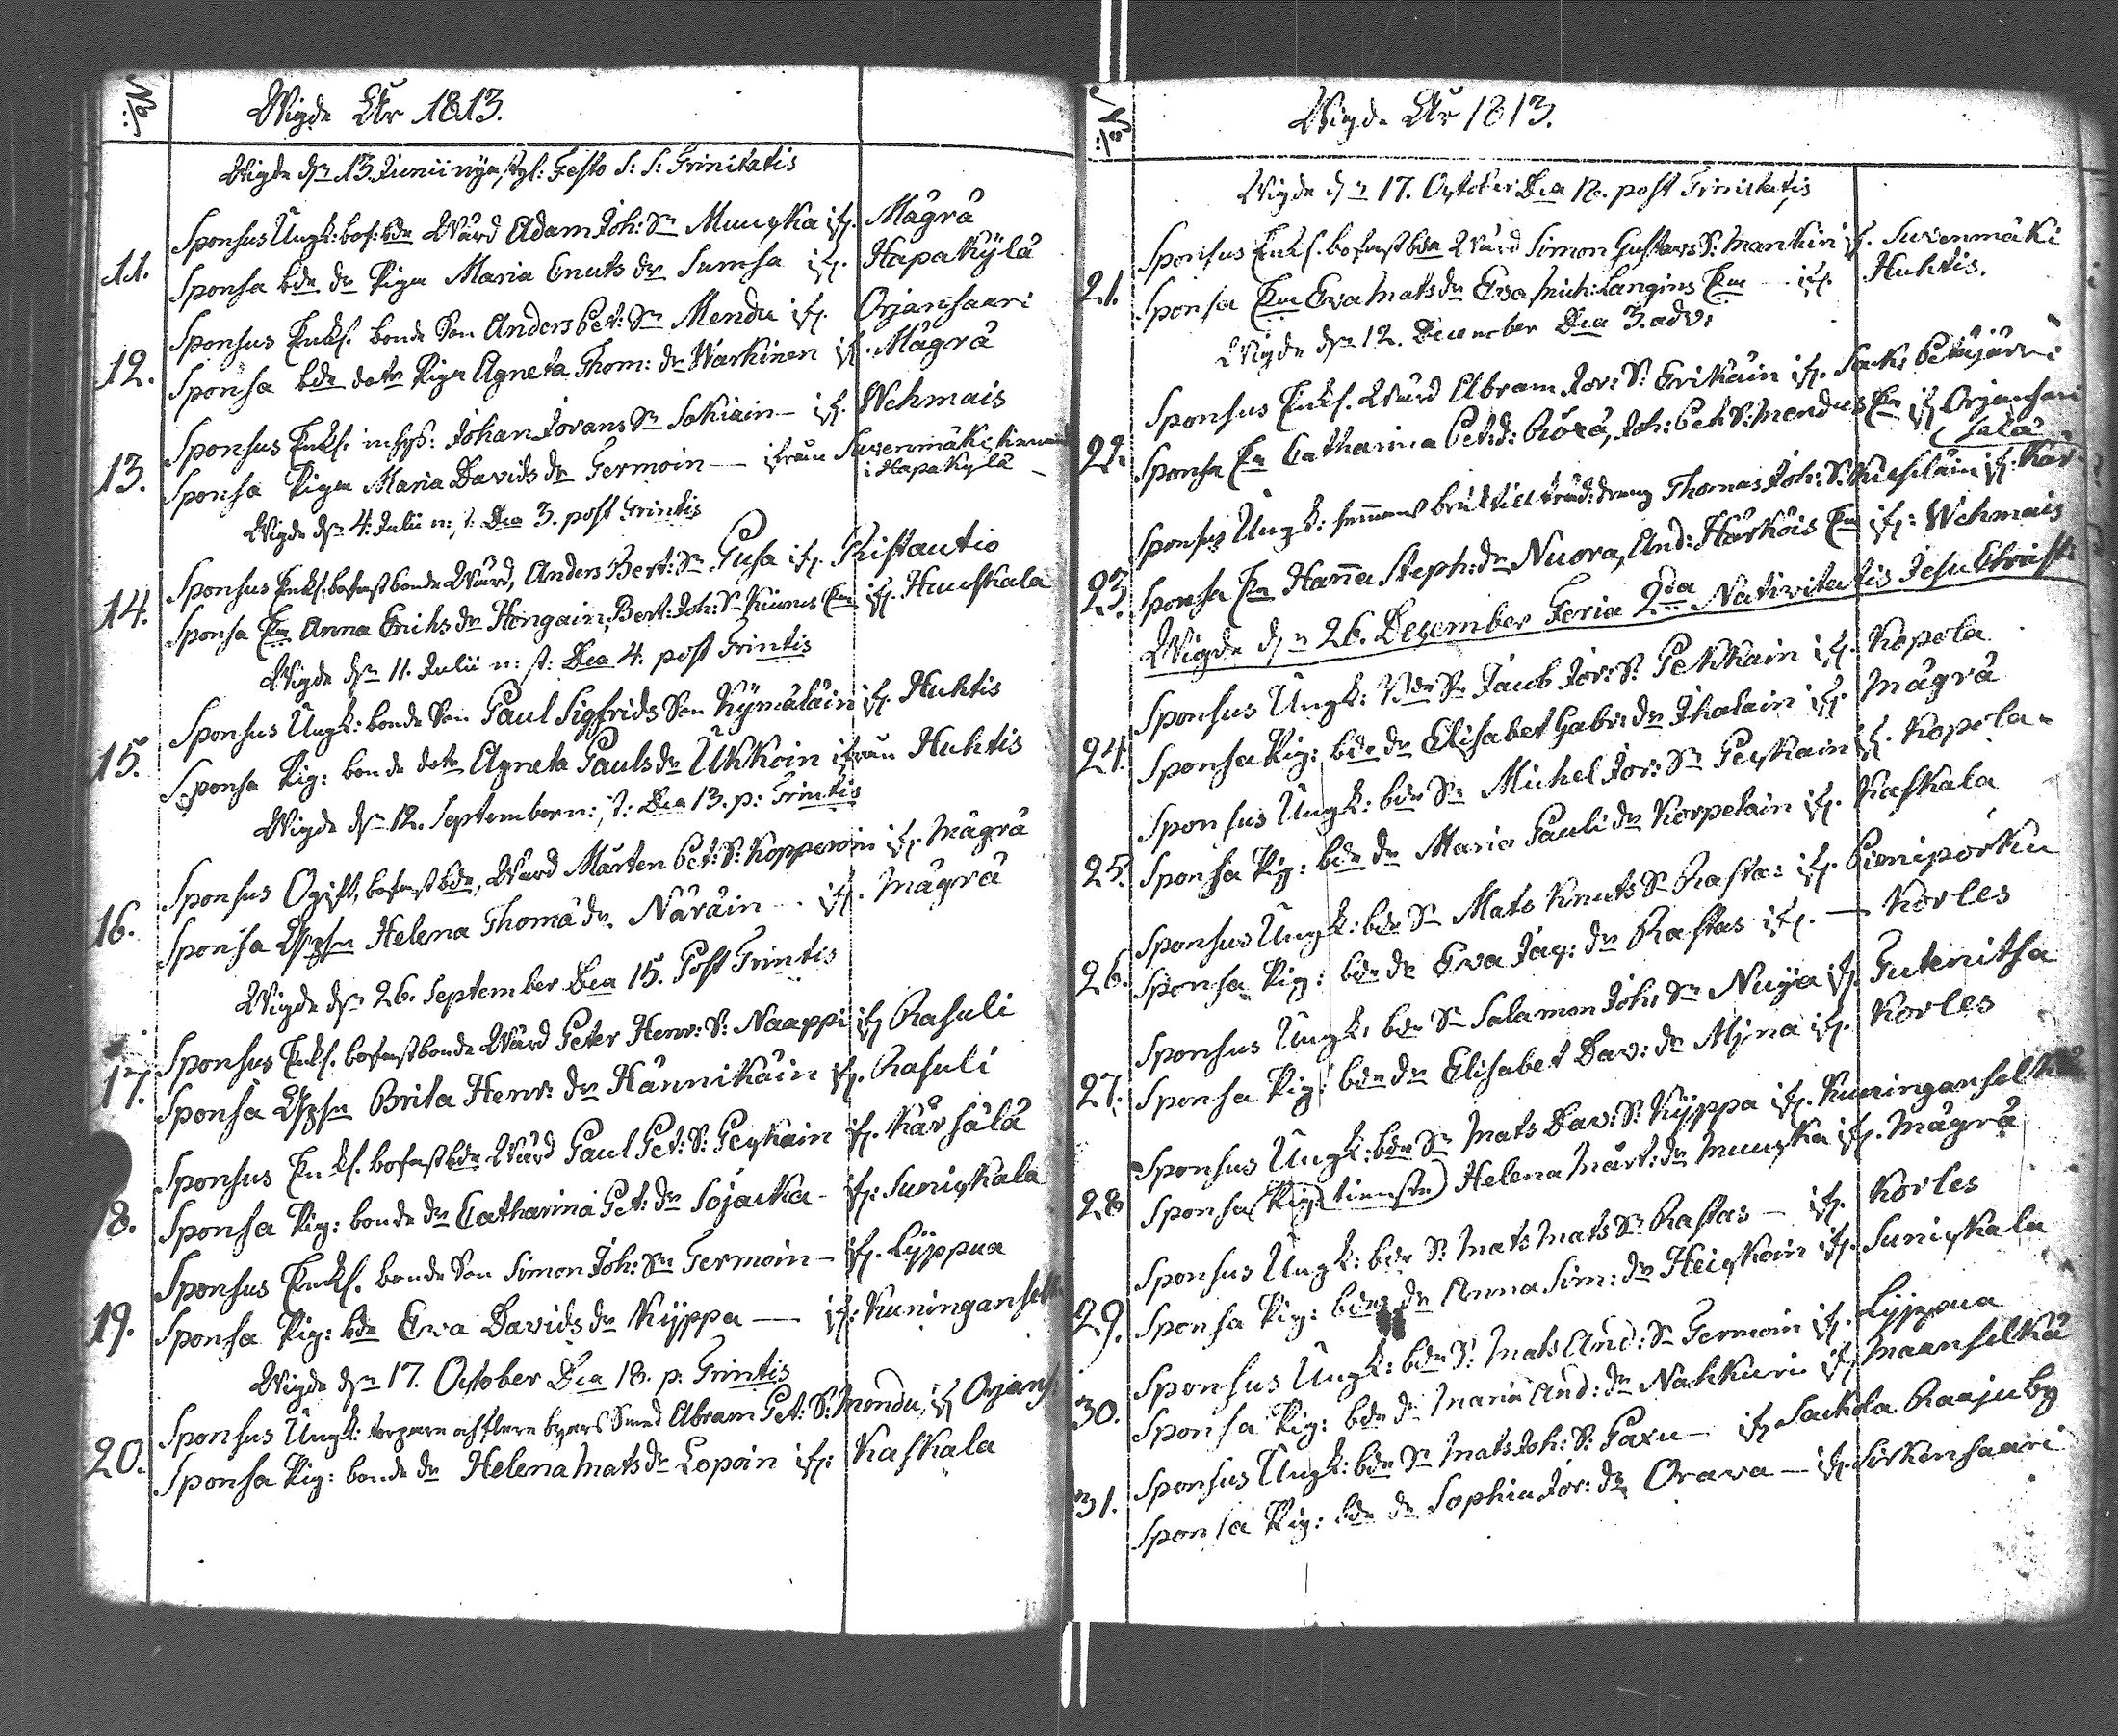 No:
Wigde År 1813.
Wigde dn 13. Junii nya styl: Festo S: S: Trinitatis
11.
Sponsus Ungk: bof: bde Wärd Adam Joh: Sn Muuska ifr. Mägrä
Sponsa bde dr Piga Maria Cnuts dr Sumsa ifr. Hapakÿlä
12.
Sponsus Enkl. bonde Son Anders Pet: Sn Mendu ifr. Orjansaari
Sponsa bde dotr Piga Agneta Thom: dr Warkinen if. Mägrä
13.
Sponsus Enkl. inhys: Johan Jörans Sn Sokiain – if. Wehmais
Sponsa Piga Maria Davids dr Termoin — ifrån Suvenmäki
i Hapakylä
Wigde dn 4. Julii n: s: Dca 3. post Trintis
14.
Sponsus Enkl. bofast bonde Wärd, Anders Bert: Sn Pusa ifr. Ristautio
Sponsa Ea Anna Erichs dr Hengain, Bert: Joh: Sn Kiurus Ea if. Huuskala
Wigde dn 11. Julii n: st: Dca 4. post Trintis
15.
Sponsus Ungk: bonde Son Paul Sigfrids Son Kÿmäläin if. Huhtis
Sponsa Pig: bonde dotr Agneta Pauls dr Ukkoin ifrån Huhtis
Wigde dn 12. September n: s: Dca 13. p: Trintis
16.
Sponsus Ogift, bofast bde, Wärd Mårten Pet: S: Kopperoin ifr. Mägrä
Sponsa Helena Thomä dr. Näräin – ifr. Mägrä
Wigde dn 26. September Dca 15. Post Trintis
17.
Sponsus Enkl. bofast bonde Wärd Peter Henr: S: Naappi if. Rasuli
Sponsa Brita Henr: dr Hännikäin if. Rasuli
18.
Sponsus Enkl. bofast bde Wärd Paul Pet: S: Peskain if. Kärsälä
Sponsa Pig: bonde dr Catharina Pet: dr Sojacka – if: Suniskala
19.
Sponsus Enkl. bonde Son Simon Joh: Sn Termoin – if. Lÿppua
Sponsa Pig: bde Eva Davids dr Kÿppa — if: Kuninganselk
Wigde dn 17. October Dca 18. p. Trintis
20.
Sponsus Ungk: torpare Abram Pet: S: Mendu, if Orjans:
Sponsa Pig: bonde dr Helena Mats dr Lopoin if: Kaskala
No:
Wigde År 1813.
Wigde dn 17. October Dca 18. post Trinitatis
21.
Sponsus Enkl. bofast bde Wärd Simon Gustavs S: Mankin if. Suvenmäki
Sponsa Ea Eva Mats dr Eva Mich: Langins Ea – if. Huhtis.
Wigde dn 12. December Dca 3. adv:
22.
Sponsus Enkl. Wärd Abram Jör: S: Erikäin if. Sack: Petäjärvi
Sponsa Ea Catharina Pet: d: Röxä, Joh: Pet: S: Mendus Ea if Orjansari
23.
Sponsus Ungk: Thomas Joh: S: Kiesiläin if. Kär
(sälä
Sponsa Ea Hanna Steph: dr Nuora, And: Härköis Ea if: Wehmais
Wigde dn 26. December Feria 2da Nativitatis Jesu Christi
24.
Sponsus Ungk: bde Sn Jacob Jör: S: Pekkain if. Kopola
Sponsa Pig: bde dr Elisabet Gabr: dr Ihalain if. Mägrä
25.
Sponsus Ungk: bde Sn Michel Jör: Sn Peskain if. Kopola.
Sponsa Pig: bde dr Maria Pauli dr Korpelain if. Kaskala
26.
Sponsus Ungk: bde Sn Mats Knuts Sn Rastas if. Pieniporku
Sponsa Pig: bde dr Eva Jaq: dr Rastas if. — Korles
27.
Sponsus Ungk: bde Sn Salamon Joh: Sn Nuija if. Putenitsa
Sponsa Pig: bde dr Elisabet Dav: dr Mjna if. Korles
28
Sponsus Ungk: bde Sn Mats Dav: S: Kÿppa if. Kuninganselkä
Sponsa (Pig: tienste) Helena Mårt: dr Muuska if. Mägrä
29.
Sponsus Ungk: bde S: Mats Mats Sn Rastas – if. Korles
Sponsa Pig: bde dr Anna Sim: dr Heiskain if. Suniskala
30.
Sponsus Ungk: bde S: Mats And: Sn Termoin if. Lÿppua
Sponsa Pig: bde dr Maria And: dr Nahkuri if Maanselkä
31.
Sponsus Ungk: bde Sn Mats Joh: S: Paxu – if Sackola Raajuby
Sponsa Pig: bde dr Sophia Jör: dr Orava — if. Sirkensaari